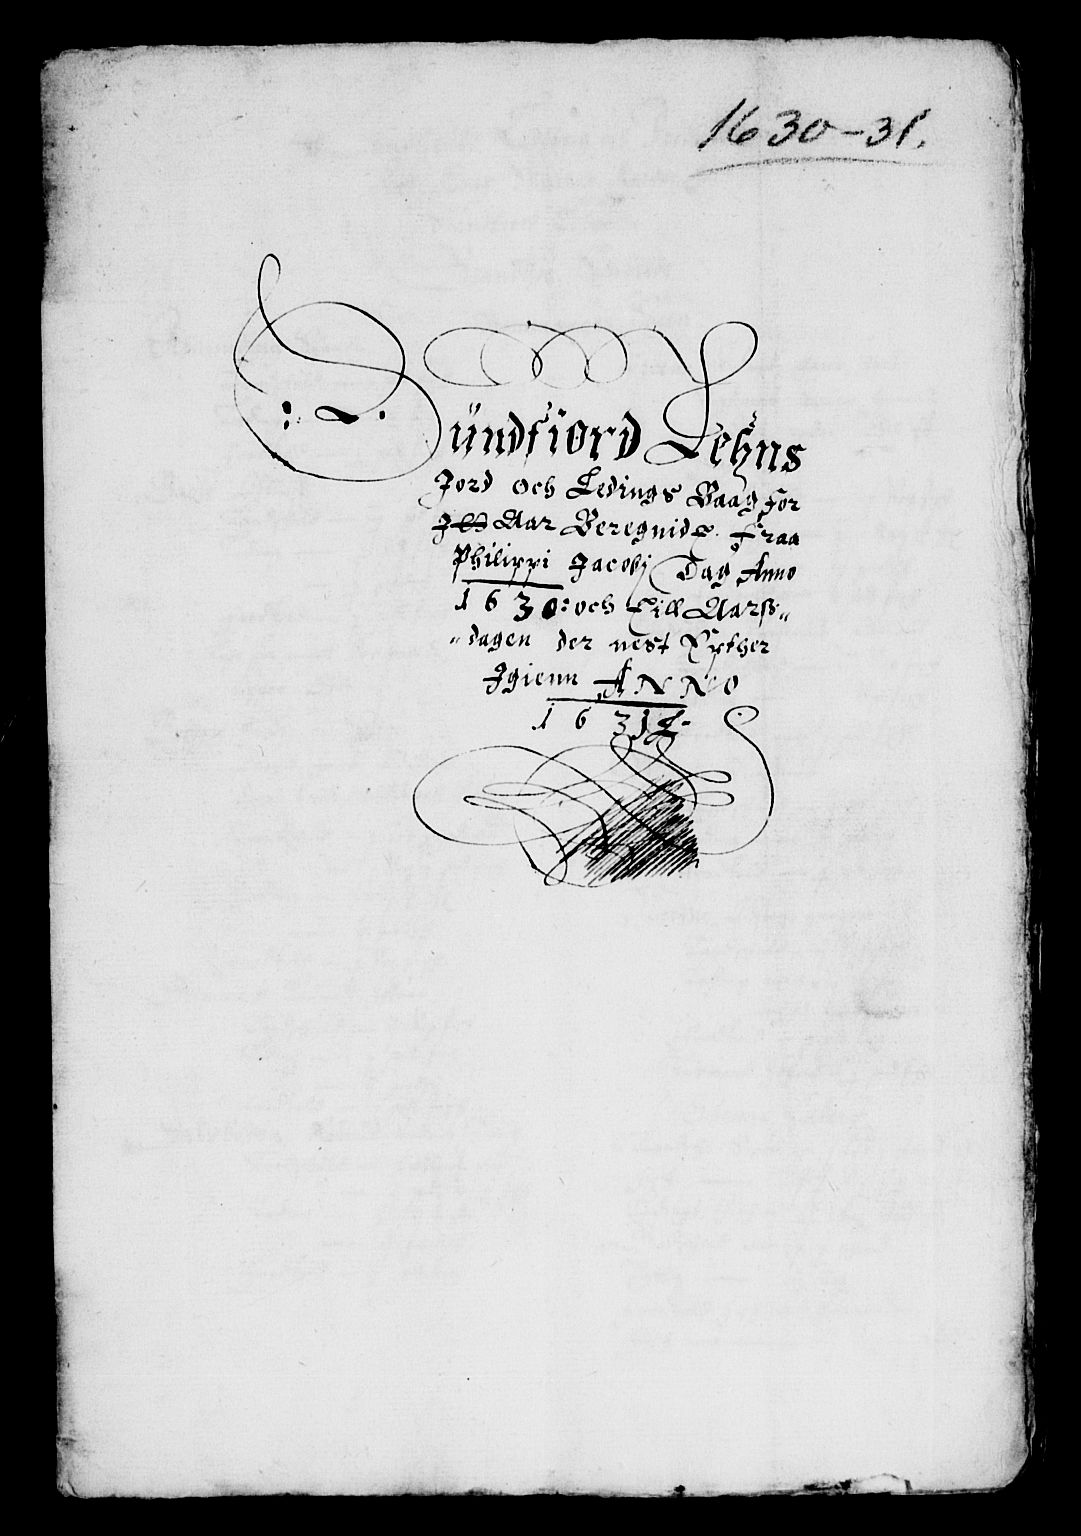 1630-31.
Sündfiord Lehns
Jord och Ledings Baag for
Jtt Aar Beregnidt. Fraa
Philippi Jacobj Dag Anno
1630: och till Aarss„
„dagen der nest Epther
Jgienn ANNO
1631